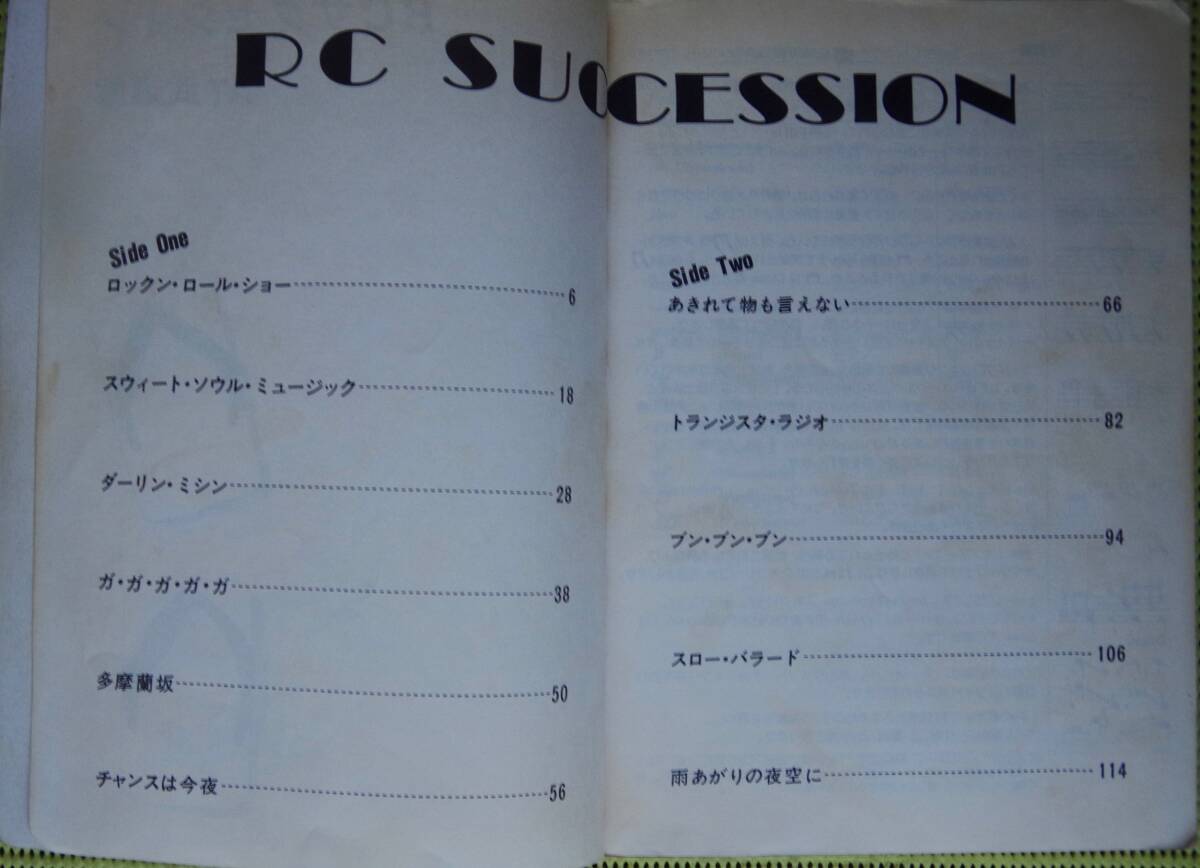 RC SUCCESSION
Side One
ロックン・ロール・ショー 6
スウィート・ソウル・ミュージック 18
ダーリン・ミシン 28
ガ・ガ・ガ・ガ・ガ 38
多摩蘭坂 50
チャンスは今夜 56
Side Two
あきれて物も言えない 66
トランジスタ・ラジオ 82
ブン・ブン・ブン 94
スロー・バラード 106
雨あがりの夜空に 114